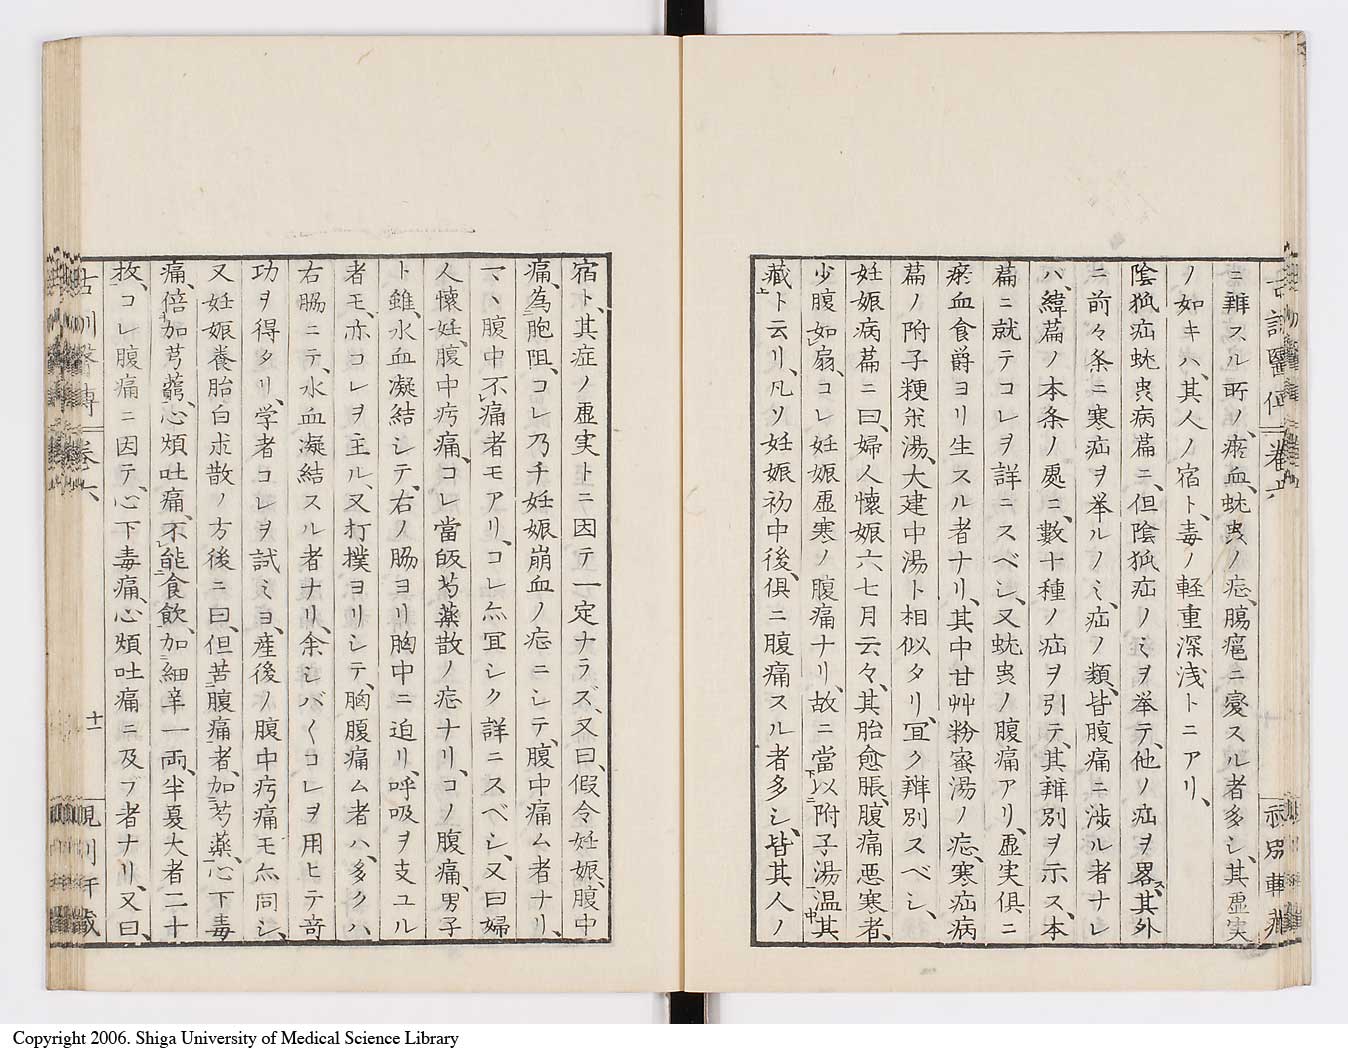 ニ辨スル所ノ、瘀血、蚘虫ノ症、腸癰ニ憂スル者多シ、其虚実
ノ如キハ、其人ノ宿ト、毒ノ軽重深浅トニアリ、
陰狐疝蚘虫病篇ニ、但陰狐疝ノミヲ挙テ、他ノ疝ヲ畧ス、其外
ニ前々条ニ寒疝ヲ挙ルノミ、疝ノ類、皆腹痛ニ渉ル者ナレ
ハ、緯篇ノ本条ノ處ニ、數十種ノ疝ヲ引テ、其辨別ヲ示ス、本
篇ニ就テコレヲ詳ニスベシ、又蚘虫ノ腹痛アリ、虚実俱ニ
瘀血食爵ヨリ生スル者ナリ、其中甘艸粉蜜湯ノ症、寒疝病
篇ノ附子粳米湯、大建中湯ト相似タリ、冝ク辨別スベシ、
妊娠病篇ニ曰、婦人懷娠六七月云々、其胎愈脹、腹痛悪寒者、
少腹如扇、コレ妊娠虚寒ノ腹痛ナリ、故ニ當以附子湯温其
藏ト云リ、凡ソ妊娠初中後、俱ニ腹痛スル者多シ、皆其人ノ
宿ト、其症ノ虚実トニ因テ一定ナラズ、又曰、假令妊娠、腹中
痛、為胞阻、コレ乃チ妊娠崩血ノ症ニシテ、腹中痛ム者ナリ、
マヽ腹中不痛者モアリ、コレ亦冝シク詳ニスベシ、又曰婦
人懷妊、腹中㽲痛、コレ當皈芍薬散ノ症ナリ、コノ腹痛、男子
ト雖、水血凝結シテ、右ノ脇ヨリ胸中ニ迫リ、呼吸ヲ支ユル
者モ、亦コレヲ主ル、又打撲ヨリシテ、胸腹痛ム者ハ、多クハ
右脇ニテ、水血凝結スル者ナリ、余シバ〱コレヲ用ヒテ竒
功ヲ得タリ、学者コレヲ試ミヨ、産後ノ腹中㽲痛モ亦同シ、
又妊娠養胎白朮散ノ方後ニ曰、但苦腹痛者、加芍薬、心下毒
痛、倍加芎藭、心煩吐痛、不能食飲、加細辛一両、半夏大者二十
枚、コレ腹痛ニ因テ、心下毒痛、心煩吐痛ニ及ブ者ナリ、又曰、
十一